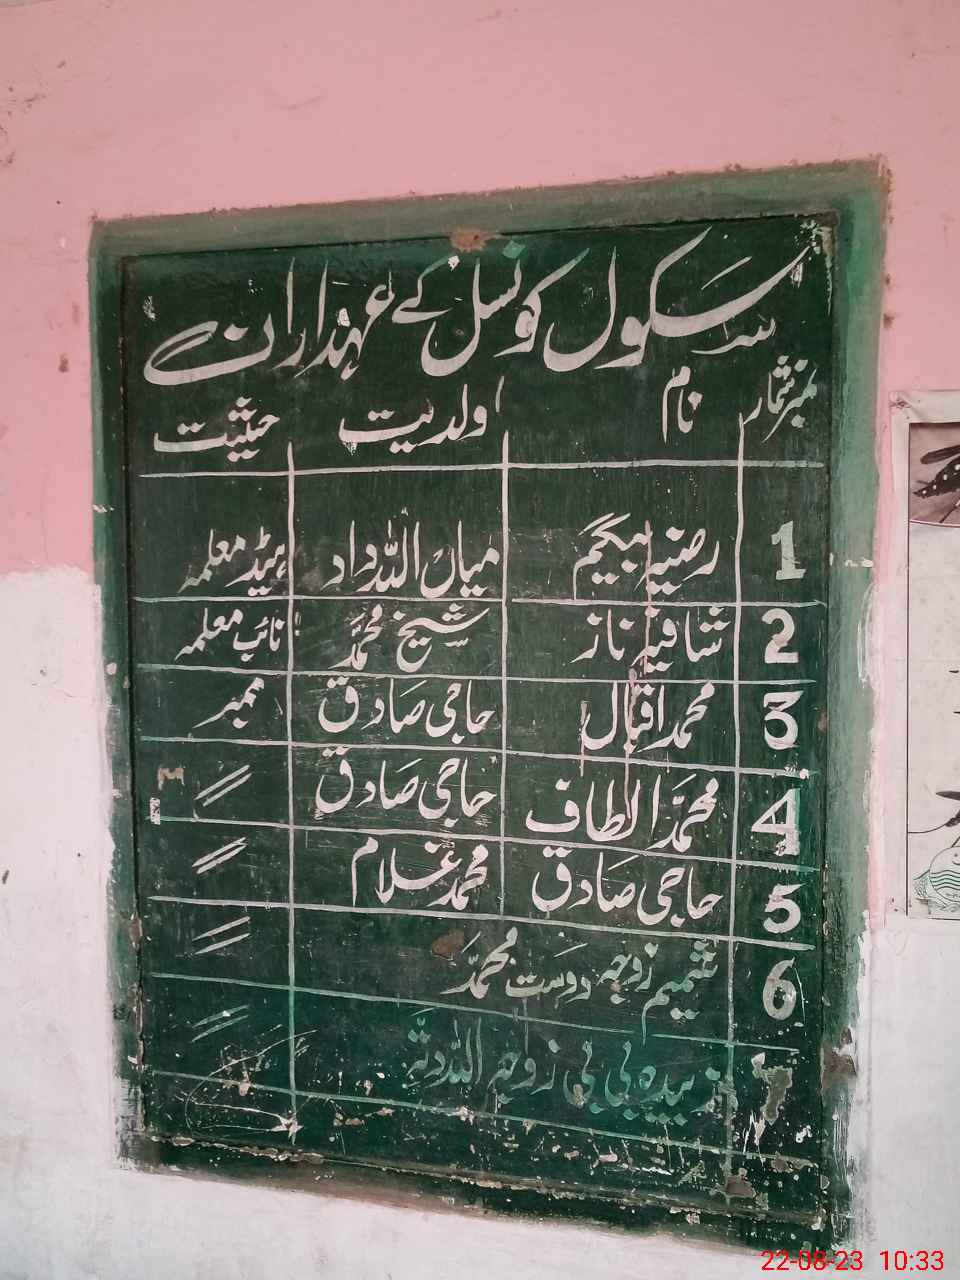 سکول کونسل کے عہدار ان
نمبر شمار نام ولدیت حیثیت
1 رضیہ بیگم میاں اللہ داد ہیڈ معلمہ
2 شافیہ ناز شیخ محمد نائب معلمہ
3 محمد اقبال حاجی صادق ممبر
4 محمد الطاف حاجی صادق //
5 حاجی صادق محمد غلام //
6 شمیم زوجہ دوست محمد //
7 زبیدہ بی بی زوجہ اللہ دتہ //
22-08-23 10:33